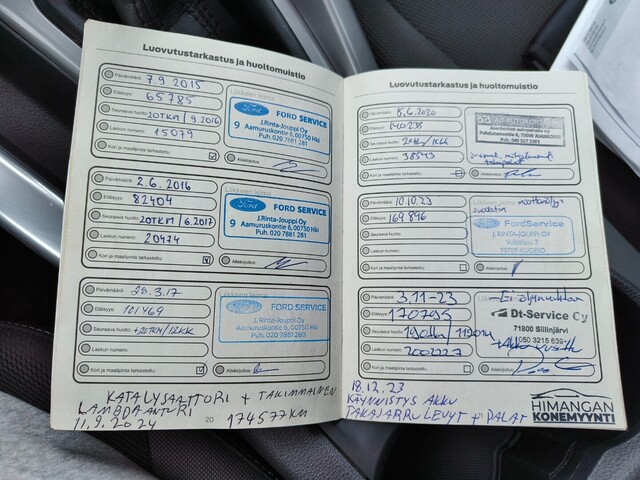 Luovutustarkastus ja huoltomuistio
Päivämäärä: 7.9.2015
Liikkeen leima
Etäisyys: 65785
Ford FORD SERVICE
Seuraava huolto: 20TKM / 9.2016
J.Rinta-Jouppi Oy
9 Aamuruskontie 6, 00750 Hki
Puh. 020 7881 281
Laskun numero: 15079
Kori ja maalipinta tarkastettu:
Allekirjoitus:
Päivämäärä: 2.6.2016
Liikkeen leima
Etäisyys: 82404
Ford FORD SERVICE
Seuraava huolto: 20TKM / 6.2017
J.Rinta-Jouppi Oy
9 Aamuruskontie 6, 00750 Hki
Puh. 020 7881 281
Laskun numero: 20474
Kori ja maalipinta tarkastettu:
Allekirjoitus:
Päivämäärä: 28.3.17
Liikkeen leima
Etäisyys: 101469
Ford FORD SERVICE
Seuraava huolto: +20TKM/12KK
J.Rinta-Jouppi Oy
Aamuruskontie 6, 00750 Hki
Laskun numero:
Kori ja maalipinta tarkastettu:
Allekirjoitus:
KATALYSAATTORI + TAKIMMAINEN
LAMBDA ANTURI
11.9.2024 174577KM
20
Luovutustarkastus ja huoltomuistio
Päivämäärä: 5.6.2020
Etäisyys: 140238
Seuraava huolto:
Laskun numero: 38543
Kori ja maalipinta tarkastettu:
Allekirjoitus:
Päivämäärä: 10.10.23
Liikkeen leima
Etäisyys: 169896
FordService
Seuraava huolto:
J.RINTA-JOUPPI OY
70780 KUOPIO
Laskun numero:
Kori ja maalipinta tarkastettu:
Allekirjoitus:
Päivämäärä: 3.11-23
Etäisyys: 170795
Dt-Service Oy
Seuraava huolto:
71800 Siilinjärvi
050 3215 639
Laskun numero: 200227
Kori ja maalipinta tarkastettu:
Allekirjoitus:
18.12.23
KÄYNNISTYS AKKU
TAKAJARRU LEVYT + PALAT
21
HIMANGAN
KONEMYYNTI